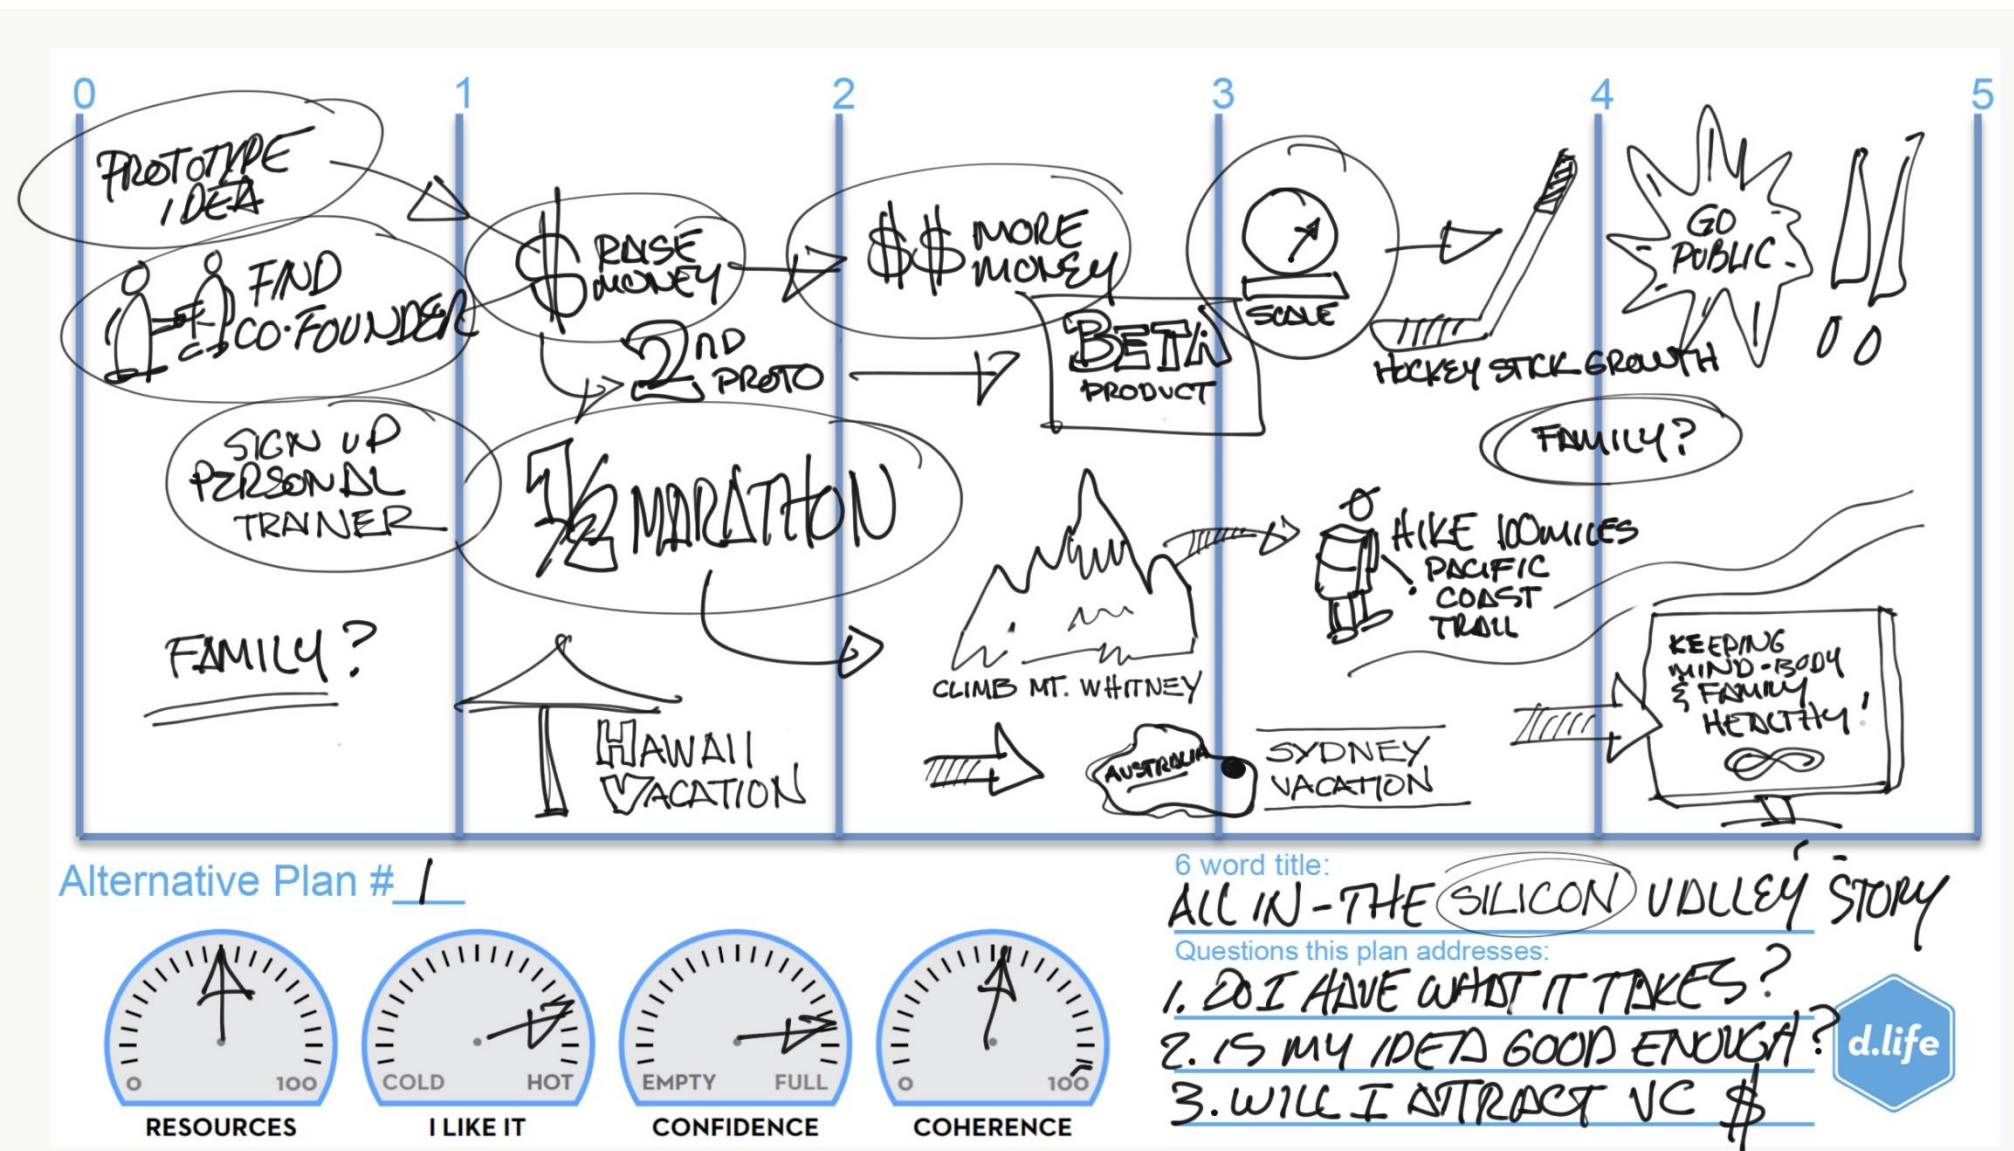 0 1 2 3 4 5
PROTOTYPE
IDEA
FIND
CO-FOUNDER
SIGN UP
PERSONAL
TRAINER
FAMILY?
$ RAISE
MONEY
2ND
PROTO
1/2 MARATHON
HAWAII
VACATION
$$ MORE
MONEY
BETA
PRODUCT
CLIMB MT. WHITNEY
AUSTRALIA
SCALE
HOCKEY STICK GROWTH
FAMILY?
HIKE 100 MILES
PACIFIC
COAST
TRAIL
SYDNEY
VACATION
GO
PUBLIC
!!
KEEPING
MIND-BODY
& FAMILY
HEALTHY!
∞
Alternative Plan # 1
0 100
RESOURCES
COLD HOT
I LIKE IT
EMPTY FULL
CONFIDENCE
0 100
COHERENCE
6 word title:
ALL IN - THE SILICON VALLEY STORY
Questions this plan addresses:
1. DO I HAVE WHAT IT TAKES?
2. IS MY IDEA GOOD ENOUGH?
3. WILL I ATTRACT VC $
d.life